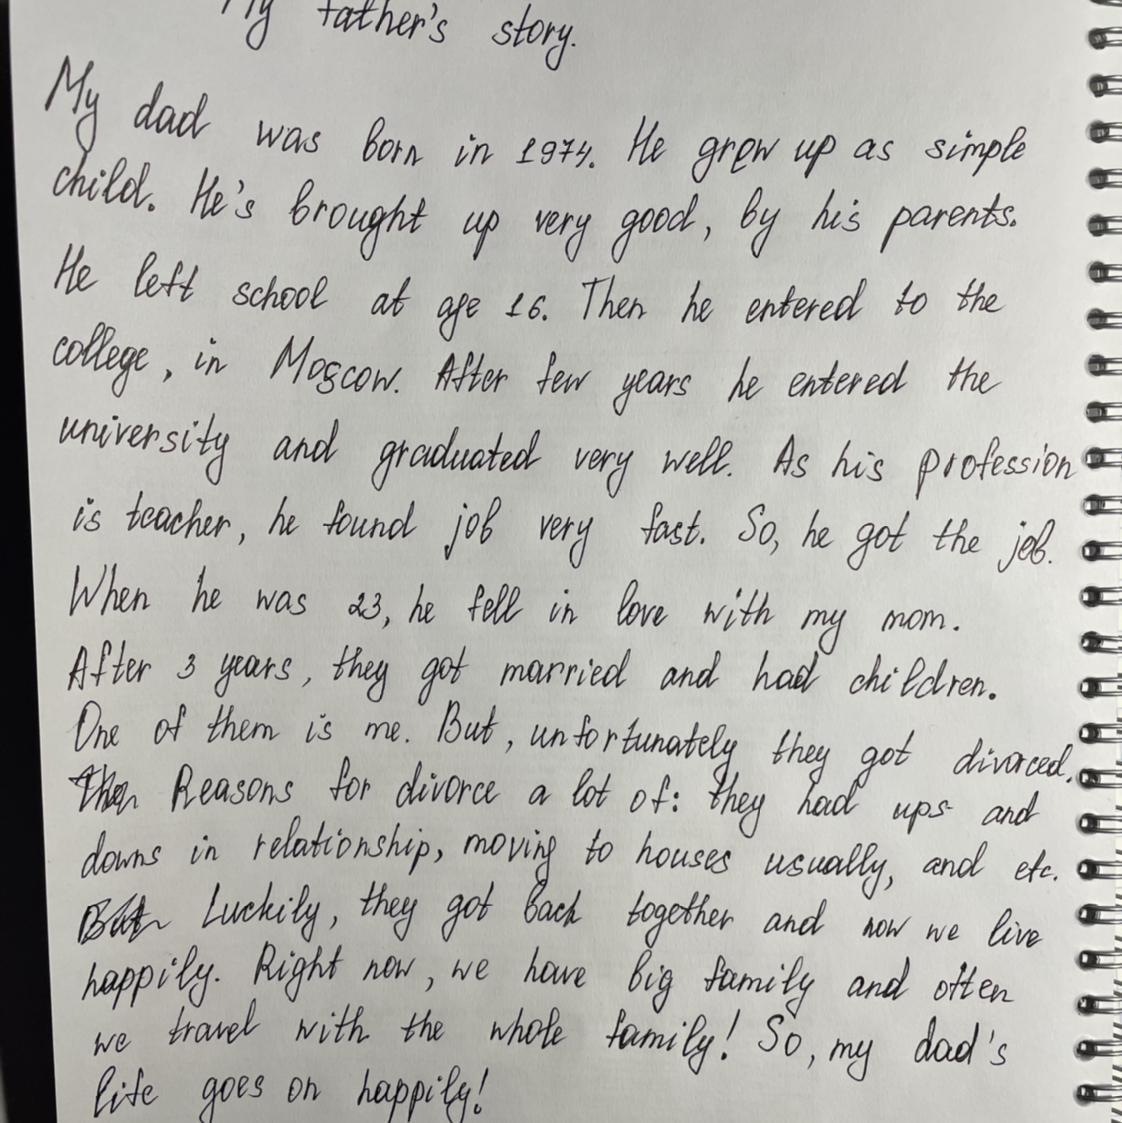 My father's story.
My dad was born in 1974. He grew up as simple
child. He's brought up very good, by his parents.
He left school at age 16. Then he entered to the
college, in Moscow. After few years he entered the
university and graduated very well. As his profession
is teacher, he found job very fast. So, he got the job.
When he was 23, he fell in love with my mom.
After 3 years, they got married and had children.
One of them is me. But, unfortunately they got divorced.
Then Reasons for divorce a lot of: they had ups and
downs in relationship, moving to houses usually, and etc.
But Luckily, they got back together and now we live
happily. Right now, we have big family and often
we travel with the whole family! So, my dad's
life goes on happily!